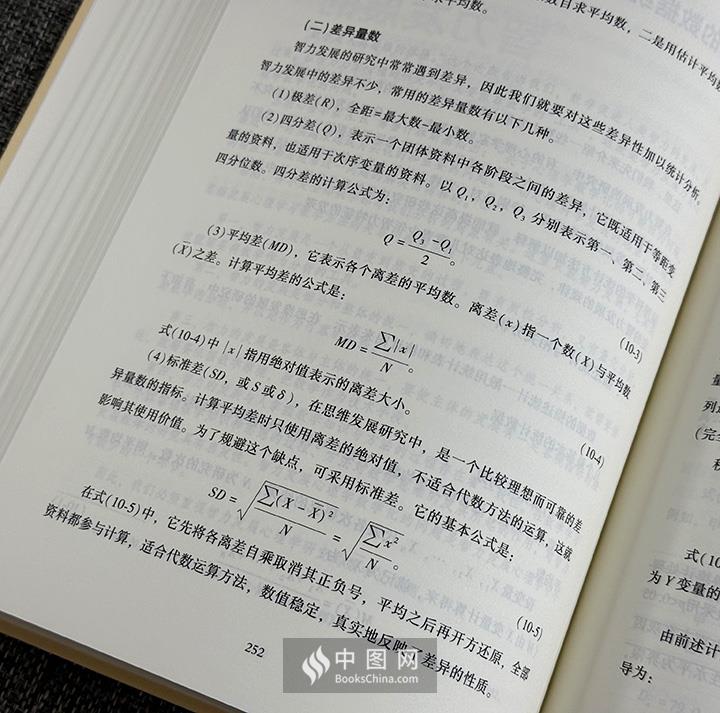 数目求平均数，二是用估计平均数
(二)差异量数
智力发展的研究中常常遇到差异，因此我们就要对这些差异性加以统计分析。
智力发展中的差异不少，常用的差异量数有以下几种。
(1)极差(R)，全距=最大数-最小数。
(2)四分差(Q)，表示一个团体资料中各阶段之间的差异，它既适用于等距变
量的资料，也适用于次序变量的资料。以 Q₁，Q₂，Q₃ 分别表示第一、第二、第三
四分位数。四分差的计算公式为：
Q = (Q₃ - Q₁) / 2。 (10-3)
(3)平均差(MD)，它表示各个离差的平均数。离差(x)指一个数(X)与平均数
(X̄)之差。计算平均差的公式是：
MD = ∑|x| / N。 (10-4)
式(10-4)中 |x| 指用绝对值表示的离差大小。
(4)标准差(SD，或 S 或 δ)，在思维发展研究中，是一个比较理想而可靠的差
异量数的指标。计算平均差时只使用离差的绝对值，不适合代数方法的运算，这就
影响其使用价值。为了规避这个缺点，可采用标准差。它的基本公式是：
SD = √(∑(X - X̄)² / N) = √(∑x² / N)。 (10-5)
在式(10-5)中，它先将各离差自乘取消其正负号，平均之后再开方还原，全部
资料都参与计算，适合代数运算方法，数值稳定，真实地反映了差异的性质。
252
中图网
BooksChina.com
列
(完全
式(10
为 Y 变量的
由前述计
导为：